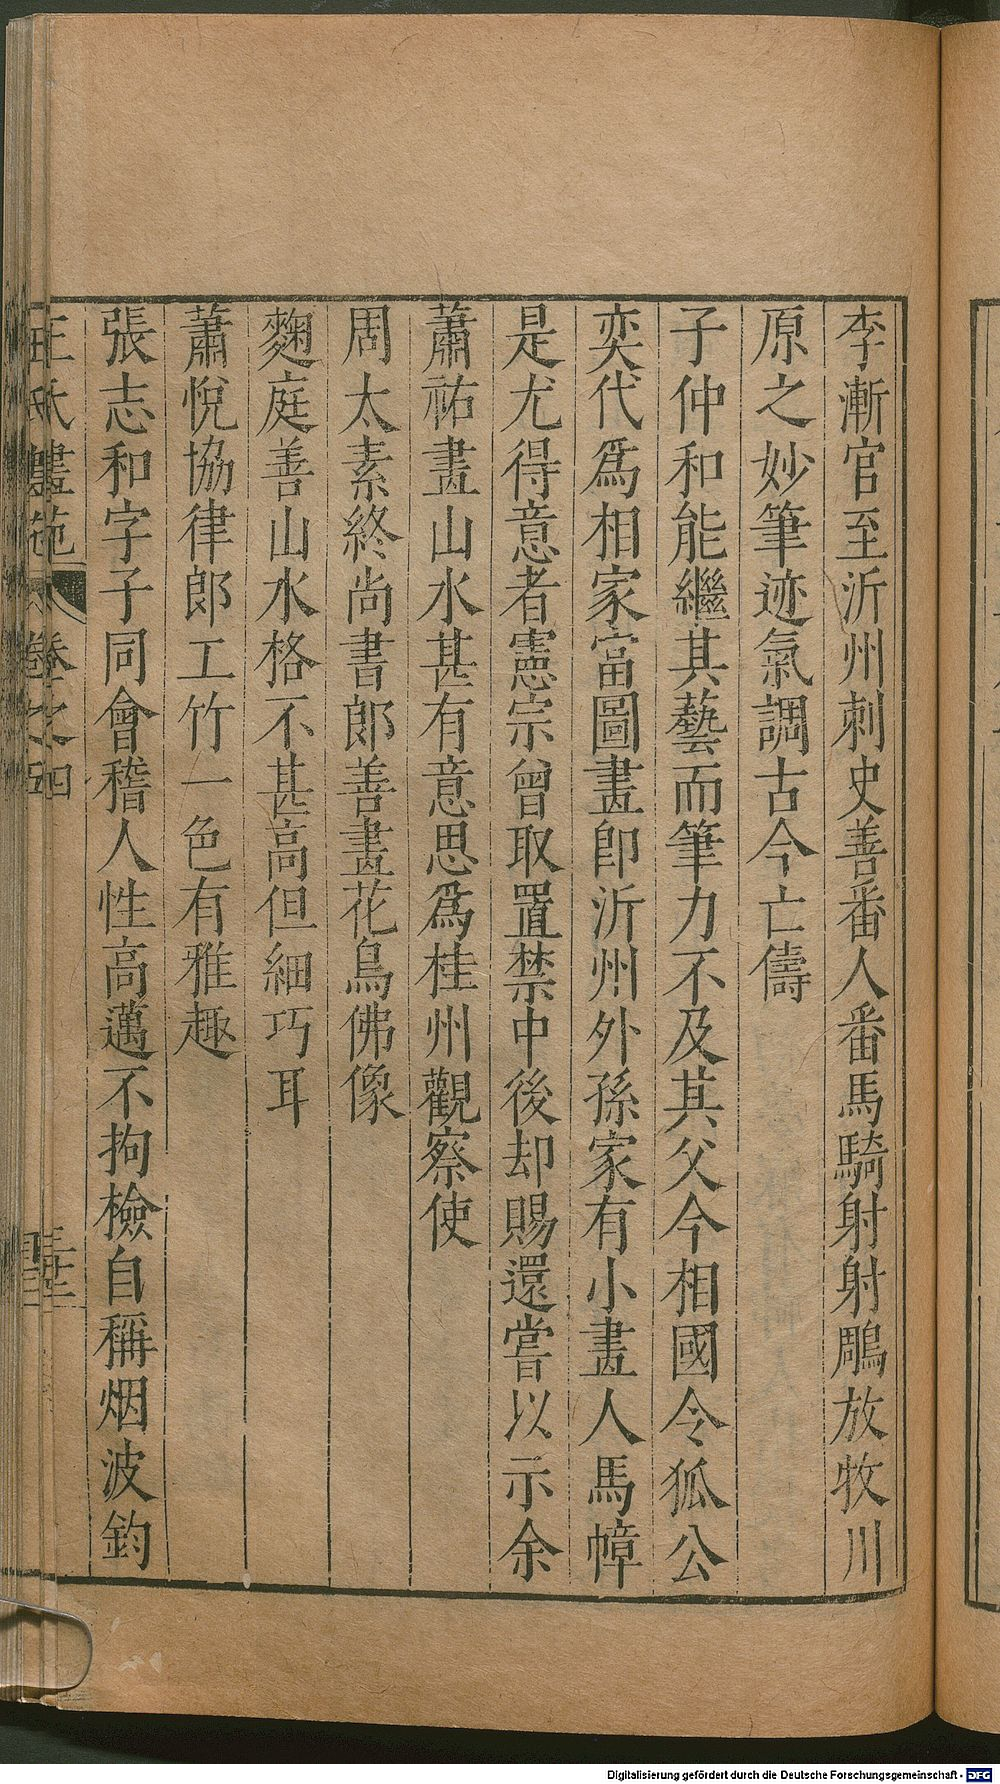 李漸官至沂州刺史善番人番馬騎射射鵰放牧川
原之妙筆迹氣調古今亡儔
子仲和能繼其藝而筆力不及其父今相國令狐公
奕代爲相家富圖畫卽沂州外孫家有小畫人馬幛
是尤得意者憲宗曾取置禁中後却賜還嘗以示余
蕭祐畫山水甚有意思爲桂州觀察使
周太素終尚書郎善畫花鳥佛像
麴庭善山水格不甚高但細巧耳
蕭悅協律郎工竹一色有雅趣
張志和字子同會稽人性高邁不拘檢自稱烟波釣
王氏畫苑 卷之四
卷之五
Digitalisierung gefördert durch die Deutsche Forschungsgemeinschaft - DFG